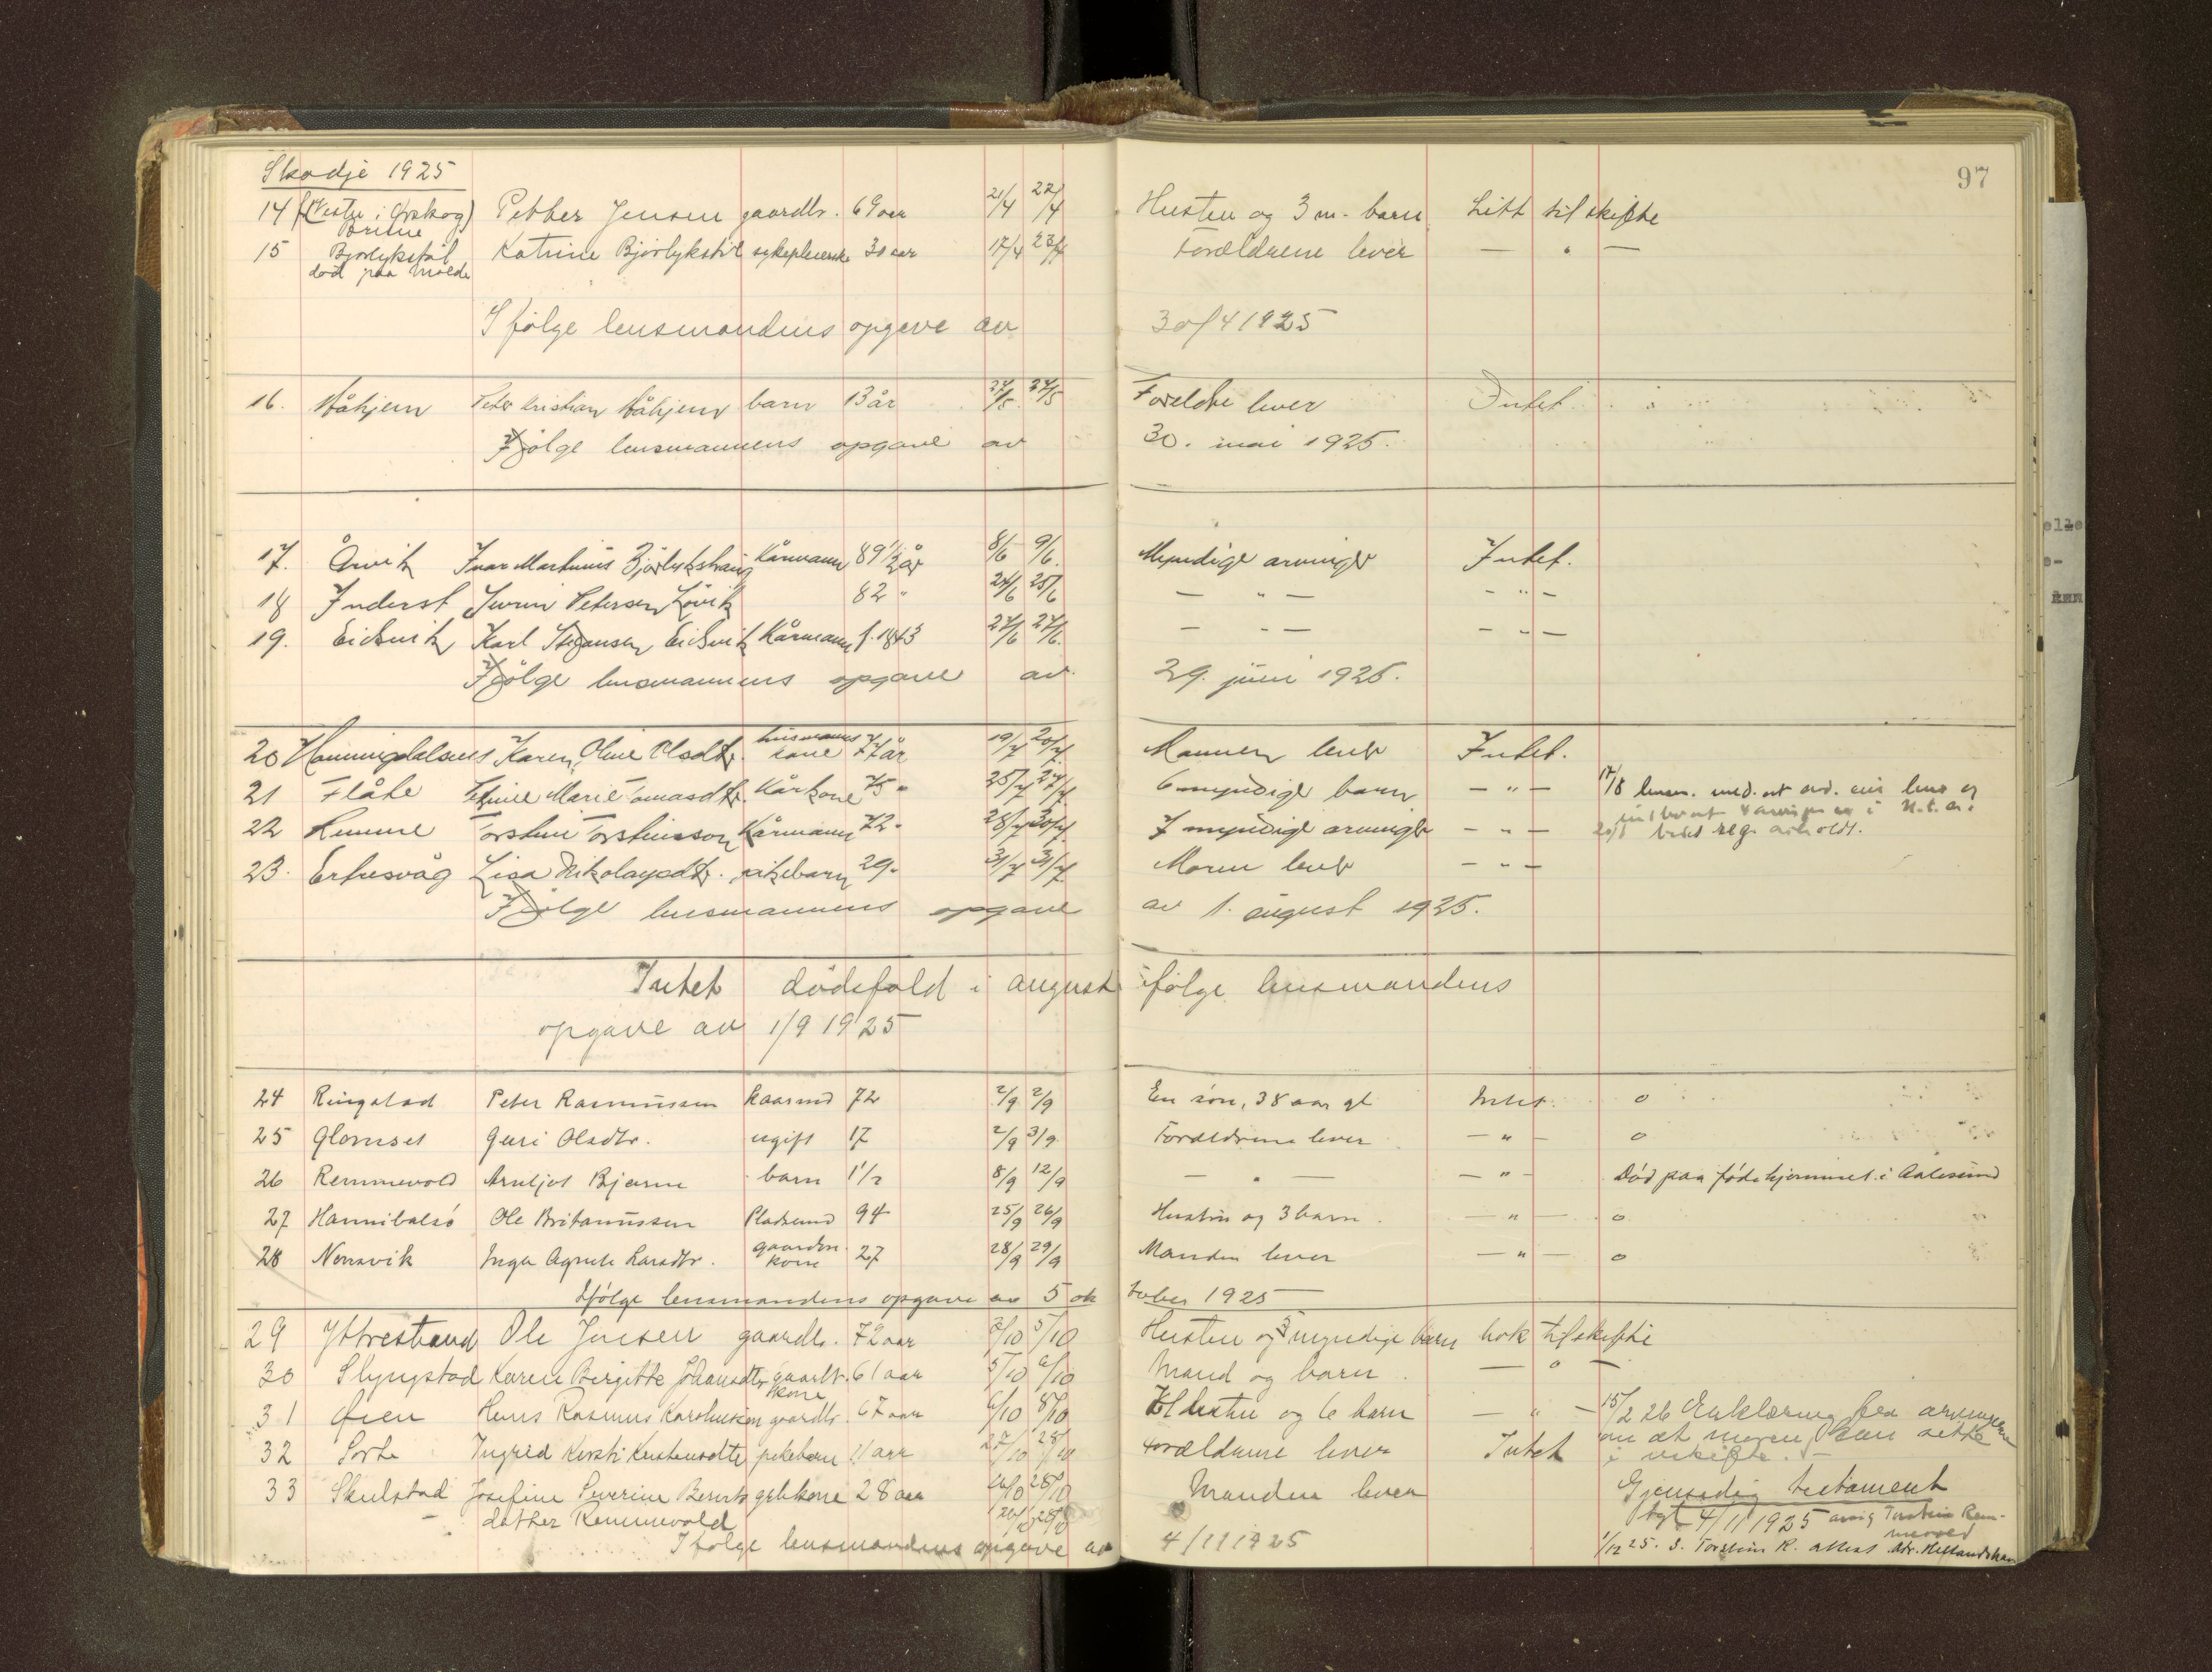 97
Skodje 1925
14 (Vestre i Ørskog) Petter Jensen gaardbr. 69 aar 21/4 27/4 Hustru og 3 m. barn Litt til skifte
Brune
15 Bjørlykstøl Katrine Bjørlykstøl sykepleierske 30 aar 17/4 23/4 Forældrene lever — " —
død paa Molde
Ifølge lensmandens opgave av 30/4 1925
16. Håhjem Peter Kristian Håhjem barn 13 år 27/5 Foreldre lever Intet
Ifølge lensmannens opgave av 30. mai 1925.
17. Årvik Ivar Martinus Bjørlykhaug Kårmann 89 1/2 år 8/6 9/6. Myndige arvinger Intet.
18 Inderst Iverine Petersen Løvik 82 " 24/6 25/6 — " — — " —
19. Eidsvik Karl Stefansen Eidsvik Kårmann f. 1843 27/6 27/6. — " — — " —
Ifølge lensmannens opgave av 29. juni 1925.
husmanns
20 Honningdalsnes Karen Oline Olsdtr. kone 77 år 19/7 20/7. Mannen lever Intet.
21 Flåte Marie Tomasdtr. Kårkone 75 " 25/7 27/7. 6 myndige barn — " — 17/8 lensm. med. at
22 Torstein Torsteinsson Kårmann 72 " 28/7 30/7. 7 myndige arvinger — " —
23. Erknesvåg Lisa Nikolaysdtr. pikebarn 29 " 31/7 31/7 Moren lever — " —
Ifølge lensmannens opgave av 1. august 1925.
Intet dødsfald i august ifølge lensmandens
opgave av 1/9 1925
24 Ringstad Peter Rasmussen kaarmd 72 2/9 2/9 En søn, 38 aar gl Intet. o
25 Glomset Guri Olsdtr. ugift 17 2/9 3/9 Forældrene lever — " — o
26 Remmevold Arnljot Bjarne barn 1 1/2 8/9 12/9 — " — — " — Død paa fødehjemmet i Aalesund
27 Hannibalsø Ole Britanussen Pladsmd 94 25/9 26/9 Hustru og 3 barn. — " — o
28 Norsvik Inga Agnete Larsdtr. gaardm. 27 28/9 29/9 Manden lever — " — o
kone
Ifølge lensmandens opgave av 5 oktober 1925
29 Yttrestrand Ole Jensen gaardbr. 72 aar 3/10 5/10 Hustru og 5 myndige barn nok til skifte
30 Slyngstad Karen Birgitte Johansdtr gaardbr. 61 aar 5/10 6/10 Mand og barn. — " —
kone
31 Øien Hans Rasmus Karolussen gaardbr. 67 aar 6/10 8/10 Hustru og 6 barn — " — 15/2 26 Erklæring fra arvingerne
om at moren kan sitte
32 Sorte Ingrid Kirsti Kristensdtr pikebarn 11 aar 27/10 28/10 Forældrene lever Intet i uskifte.
33 Skulstad Josefine Severine Bernts gbrkone 28 aar 28/10 Manden lever Gjensidig testament
datter Remmevold
tgl 4/11 1925 Torstein Rem-
mevold
Ifølge lensmandens opgave av 4/11 1925
1/12 25. S. Torstein R. attest